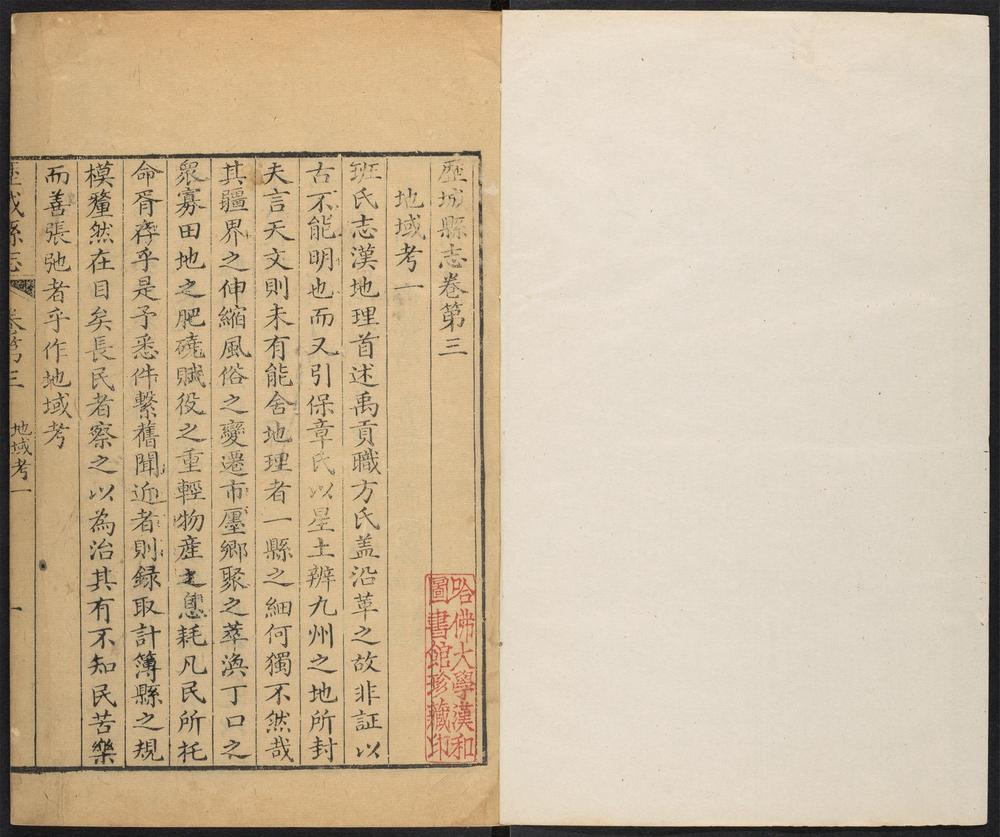 歷城縣志卷第三
地域考一
班氏志漢地理首述禹貢職方氏盖沿革之故非証以
古不能明也而又引保章氏以星土辨九州之地所封
夫言天文則未有能舍地理者一縣之細何獨不然哉
其疆界之伸縮風俗之變遷市廛鄉聚之萃渙丁口之
衆寡田地之肥磽賦役之重輕物產之息耗凡民所托
命胥存乎是予悉件繫舊聞近者則録取計簿縣之規
模釐然在目矣長民者察之以為治其有不知民苦樂
而善張弛者乎作地域考
歷城縣志
卷第三
地域考一
一
哈佛大學漢和
圖書館珍藏印